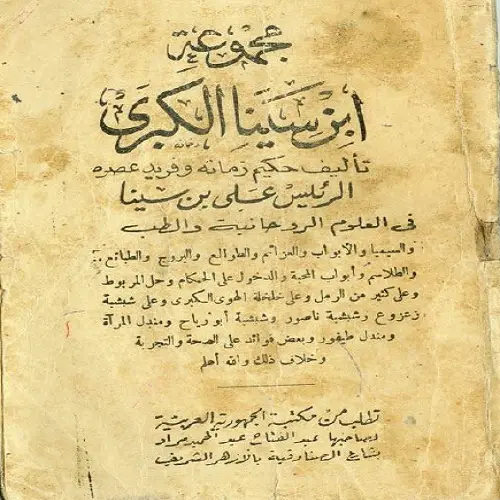 مجموعة
ابن سينا الكبرى
تأليف حكيم زمانه وفريد عصره
الرئيس على بن سينا
فى العلوم الروحانية والطب
والسيميا والأبواب والعزائم والطوالع والبروج والطبائع
والطلاسم وأبواب المحبة والدخول على الحكام وحل المربوط
وعلى كثير من الرمل وعلى خلخلة الهوى الكبرى وعلى شبشبة
زعزوع وشبشبة ناصور وشبشبة أبو رياح ومندل المرآة
ومندل طيفور وبعض فوائد على الصحة والتجربة
وخلاف ذلك والله أعلم
تطلب من مكتبة الجمهورية العربية
لصاحبها عبد الفتاح عبد الحميد مراد
بشارع الصنادقية بالأزهر الشريف